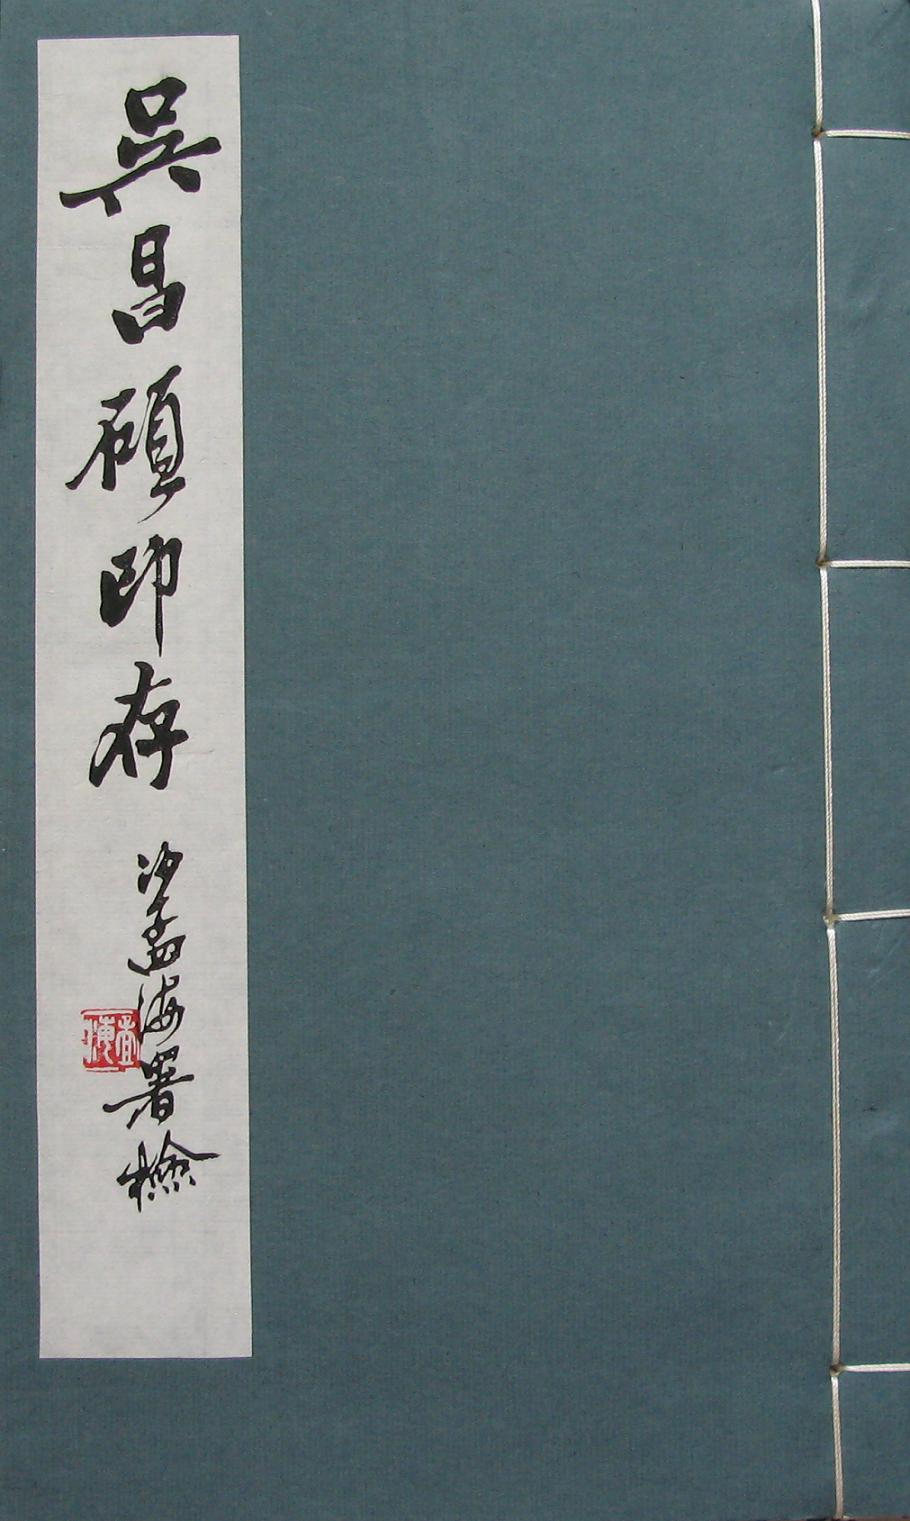 吳昌碩印存
沙孟海署檢
孟海